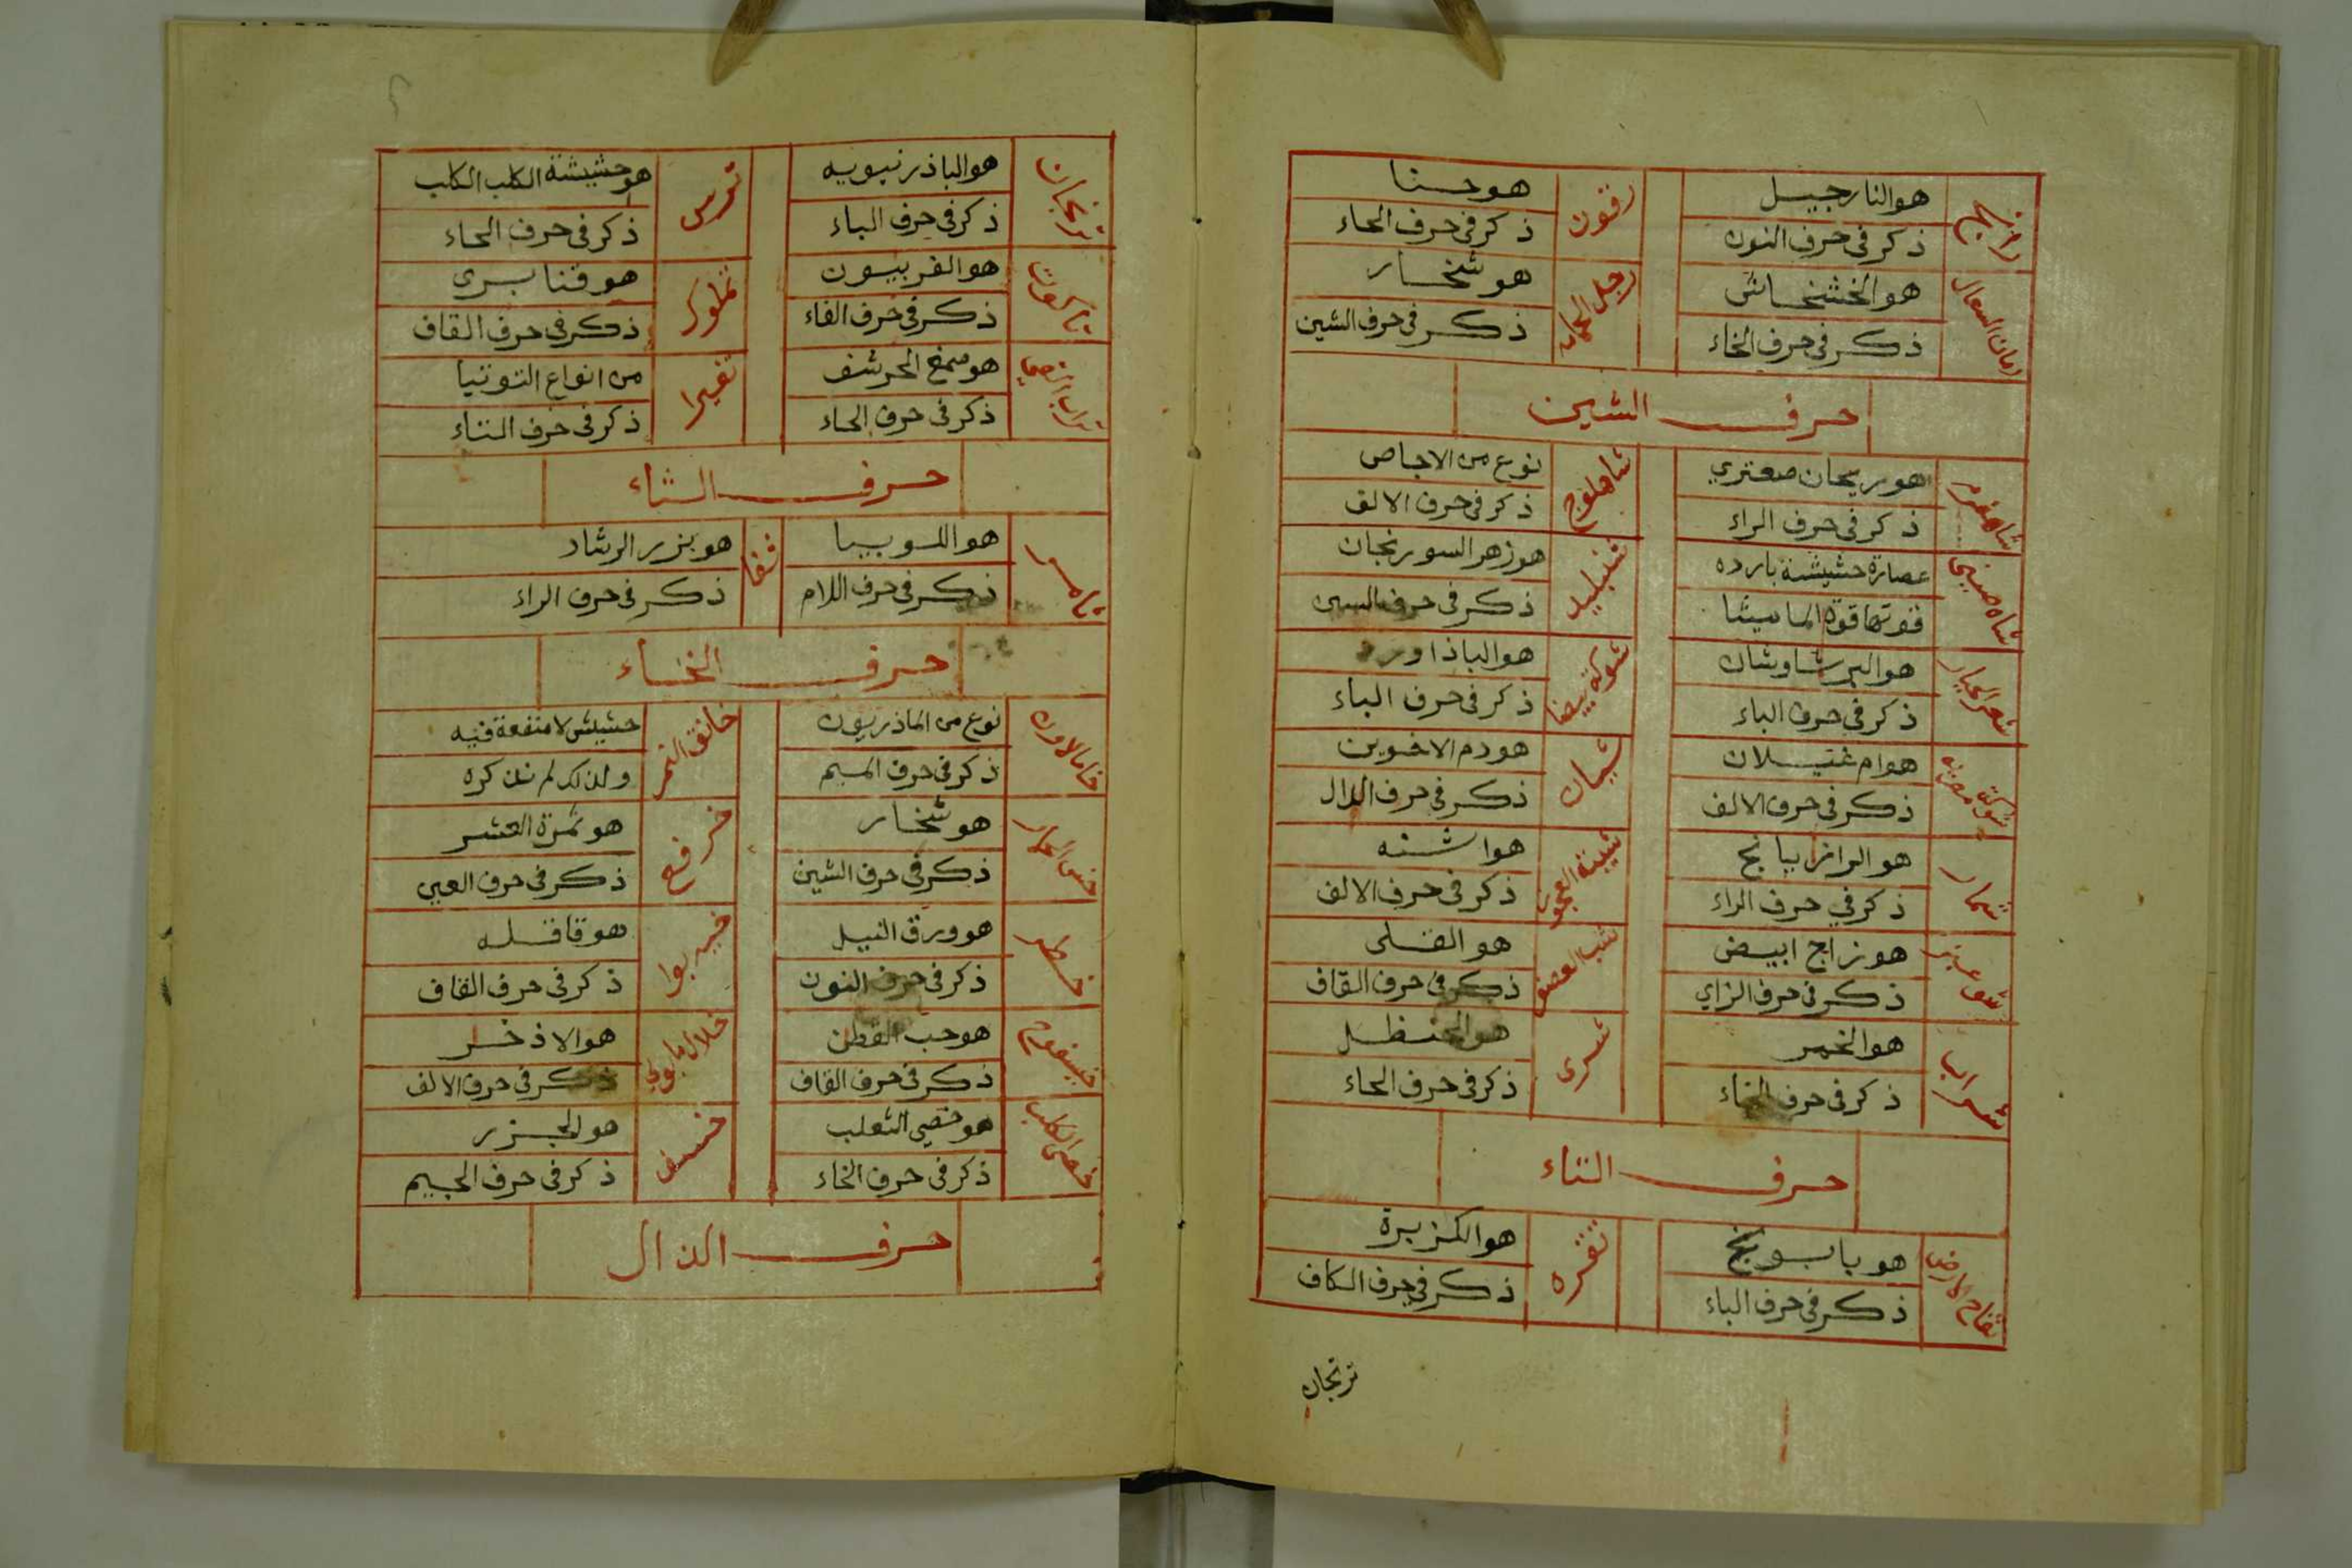 رانج
هو النارجيل
ذكر فى حرف النون
رقون
هو حنا
ذكر فى حرف الحاء
رمان السعال
هو الخشخاش
ذكر فى حرف الخاء
رجل
هو شنخار
ذكر فى حرف الشين
حرف الشين
شاهفرم
هو ريحان صعتري
ذكر فى حرف الراء
شاهلوج
نوع من الاجاص
ذكر فى حرف الالف
شاه صينى
عصارة حشيشة بارده
قوتها قوة الماميثا
شنبليد
هو زهر السورنجان
ذكر فى حرف السين
شعر الجبار
هو البرشاوشان
ذكر فى حرف الباء
شوكة بيضا
هو الباذاورد
ذكر فى حرف الباء
شوكة مصريه
هو ام غيلان
ذكر فى حرف الالف
شيان
هو دم الاخوين
ذكر فى حرف الدال
شمار
هو الرازيانج
ذكر في حرف الراء
شيبة العجوز
هو اشنه
ذكر فى حرف الالف
هو زاج ابيض
ذكر فى حرف الزاي
شب العصفر
هو القلى
ذكر فى حرف القاف
شراب
هو الخمر
ذكر فى حرف الخاء
شرى
هو الحنظل
ذكر فى حرف الحاء
حرف التاء
تفاح الارض
هو بابونج
ذكر فى حرف الباء
تقره
هو الكزبرة
ذكر فى حرف الكاف
ترنجان
ترنجان
هو الباذرنبويه
ذكر فى حرف الباء
ترمس
هو حشيشة الكلب الكلب
ذكر فى حرف الحاء
تاكوت
هو الفربيون
ذكر فى حرف الفاء
تملول
هو قنا برى
ذكر فى حرف القاف
تراب القئ
هو صمغ الحرشف
ذكر فى حرف الحاء
تفيرا
من انواع التوتيا
ذكر فى حرف التاء
حرف الثاء
ثامر
هو اللوبيا
ذكر فى حرف اللام
ثفا
هو بزر الرشاد
ذكر فى حرف الراء
حرف الخاء
خامالاون
نوع من الماذريون
ذكر فى حرف الميم
خانق النمر
حشيش لا منفعة فيه
ولذلك لم نذكره
خس الحمار
هو شنخار
ذكر فى حرف الشين
خرفع
هو ثمرة العشر
ذكر فى حرف العين
خطر
هو ورق النيل
ذكر فى حرف النون
خير بوا
هو قاقله
ذكر فى حرف القاف
خيسفوج
هو حب القطن
ذكر فى حرف القاف
خلال مامونى
هو الاذخر
ذكر فى حرف الالف
خصى الكلب
هو خصى الثعلب
ذكر فى حرف الخاء
خسف
هو الجزر
ذكر فى حرف الجيم
حرف الذال